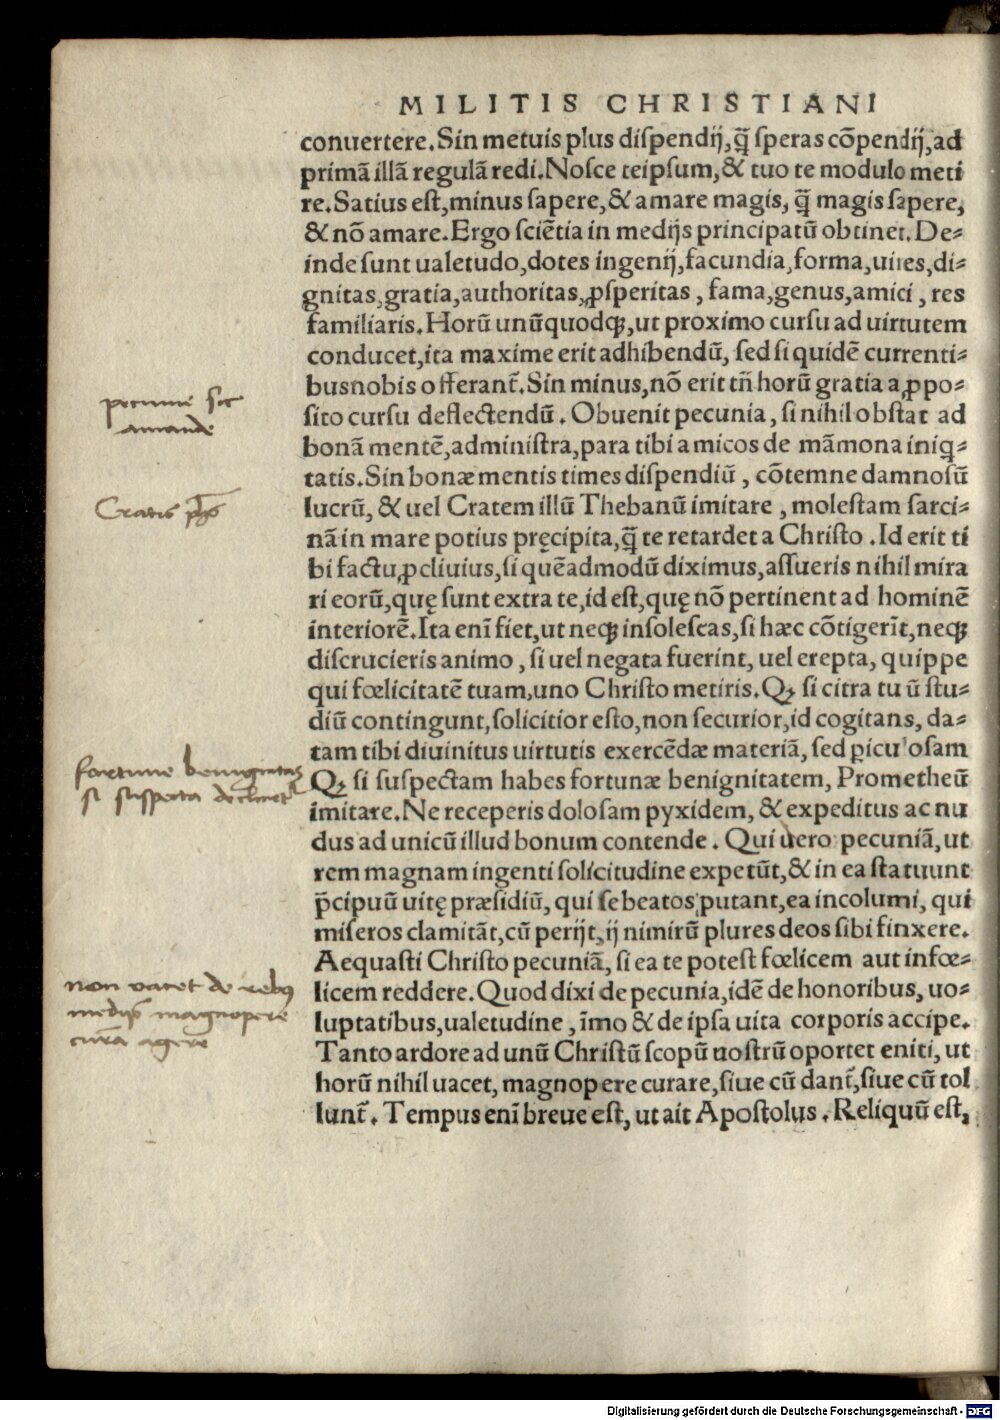 MILITIS CHRISTIANI
conuertere.Sin metuis plus diſpendij,q̄ ſperas cōpendij,ad
primā illā regulā redi.Noſce teipſum,& tuo te modulo meti
re.Satius eſt,minus ſapere,& amare magis, q̄ magis ſapere,
& nō amare.Ergo ſciētia in medijs principatū obtinet.De⸗
inde ſunt ualetudo,dotes ingenij,facundia,forma,uires,di⸗
gnitas,gratia,authoritas,ꝓſperitas, fama,genus,amici, res
familiaris.Horū unūquodqꝫ,ut proximo curſu ad uirtutem
conducet,ita maxime erit adhibendū, ſed ſi quidē currenti⸗
bus nobis offerant᷑.Sin minus,nō erit tn̄ horū gratia a ꝓpo⸗
ſito curſu deflectendū. Obuenit pecunia, ſi nihil obſtat ad
bonā mentē,adminiſtra,para tibi amicos de māmona iniq⸗
tatis.Sin bonæ mentis times diſpendiū, cōtemne damnoſū
lucrū, & uel Cratem illū Thebanū imitare, moleſtam ſarci⸗
nā in mare potius pręcipita,q̄ te retardet a Chriſto.Id erit ti
bi factu ꝓcliuius,ſi quēadmodū diximus,aſſueris nihil mira
ri eorū,quę ſunt extra te,id eſt,quę nō pertinent ad hominē
interiorē.Ita enī fiet,ut neqꝫ inſoleſcas,ſi hæc cōtigerīt,neqꝫ
diſcrucieris animo, ſi uel negata fuerint, uel erepta, quippe
qui fœlicitatē tuam,uno Chriſto metiris.Qꝫ ſi citra tuū ſtu⸗
diū contingunt,ſolicitior eſto,non ſecurior,id cogitans, da⸗
tam tibi diuinitus uirtutis exercēdæ materiā, ſed ꝑiculoſam
Qꝫ ſi ſuſpectam habes fortunæ benignitatem, Prometheū
imitare.Ne receperis doloſam pyxidem, & expeditus ac nu
dus ad unicū illud bonum contende. Qui uero pecuniā,ut
rem magnam ingenti ſolicitudine expetūt,& in ea ſtatuunt
p̄cipuū uitę præſidiū, qui ſe beatos putant,ea incolumi, qui
miſeros clamitāt,cū perijt,ij nimirū plures deos ſibi finxere.
Aequaſti Chriſto pecuniā, ſi ea te poteſt fœlicem aut infœ⸗
licem reddere.Quod dixi de pecunia,idē de honoribus, uo⸗
luptatibus,ualetudine, īmo & de ipſa uita corporis accipe.
Tanto ardore ad unū Chriſtū ſcopū noſtrū oportet eniti, ut
horū nihil uacet, magnopere curare,ſiue cū dant᷑,ſiue cū tol
lunt᷑. Tempus enī breue eſt, ut ait Apoſtolus. Reliquū eſt,
pecunie sic
amande
Cratis
fortune benignitas
si suspecta
non vacet de rebus
medijs magnopere
curā agere
Digitalisierung gefördert durch die Deutsche Forschungsgemeinschaft - DFG